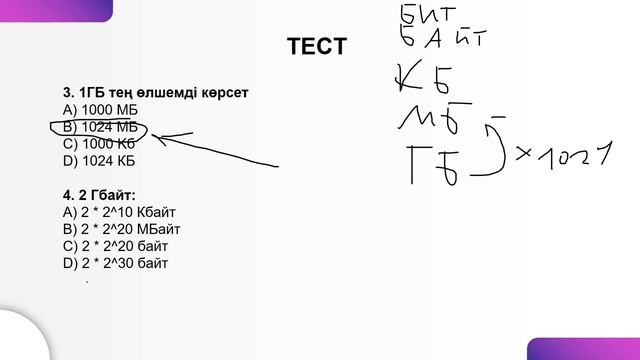 ТЕСТ
3. 1ГБ тең өлшемді көрсет
A) 1000 МБ
B) 1024 МБ
C) 1000 Кб
D) 1024 КБ
4. 2 Гбайт:
A) 2 * 2^10 Кбайт
B) 2 * 2^20 МБайт
C) 2 * 2^20 байт
D) 2 * 2^30 байт
БИТ
БАЙТ
КБ
МБ
ГБ
×1024